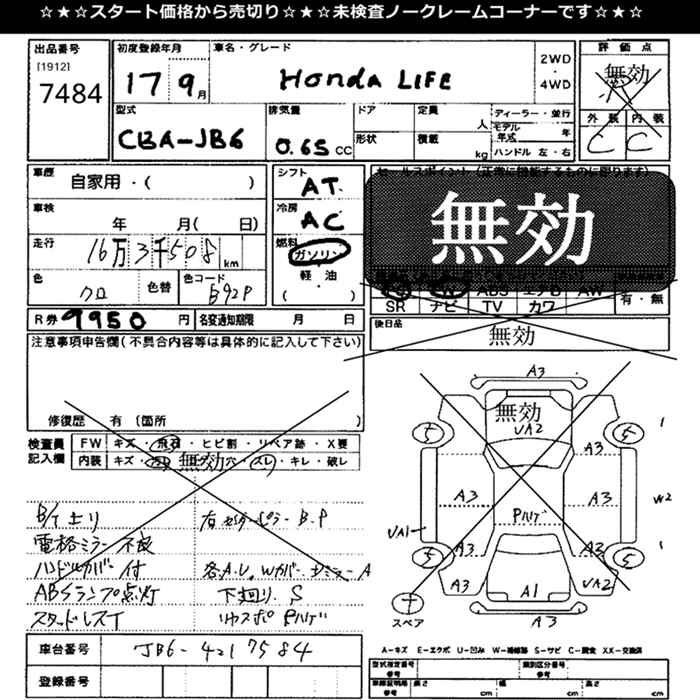 ☆★☆★スタート価格から売切り☆★☆★未検査ノークレームコーナーです☆★☆
出品番号 初度登録年月 車名・グレード 2WD・4WD 評価点
[1912]
7484 17 9月 Honda LIFE 無効
外装 内装
C C
型式 排気量 ドア 定員 人 ディーラー・並行
CBA-JB6 0.65 CC 形状 積載 kg モデル年式 年
ハンドル 左・右
車歴 自家用・( ) シフト AT セールスポイント(正常に機能するものに限ります)
車検 年 月( 日) 冷房 AC 無効
走行 16万3千508km 燃料 ガソリン
軽・油
( )
色 クロ 色替 色コード B92P
SR ナビ TV カワ 有・無
R券 9950円 名変通知期限 月 日 後日品 無効
注意事項申告欄(不具合内容等は具体的に記入して下さい)
修復歴 有(箇所
検査員記入欄 FW キズ・飛石・ヒビ割・リペア跡・X要
内装 キズ・無効穴・スレ・キレ・破レ
電格ミラー不良
ハンドルカバー付
ABSランプ点灯 下廻り S
スタッドレス
車台番号 JB6-4217584
登録番号
A3
無効
UA2
5 5
A3
A3 A3
UA1
A3 A3
5 5
A3 A1 UA2
スペア 無効
A-キズ E-エクボ U-凹み W-補修跡 S-サビ C-腐食 XX-交換済
型式指定番号 参考 類別区分番号 参考
車検証明長 参考 長さ cm 幅 cm 高さ cm